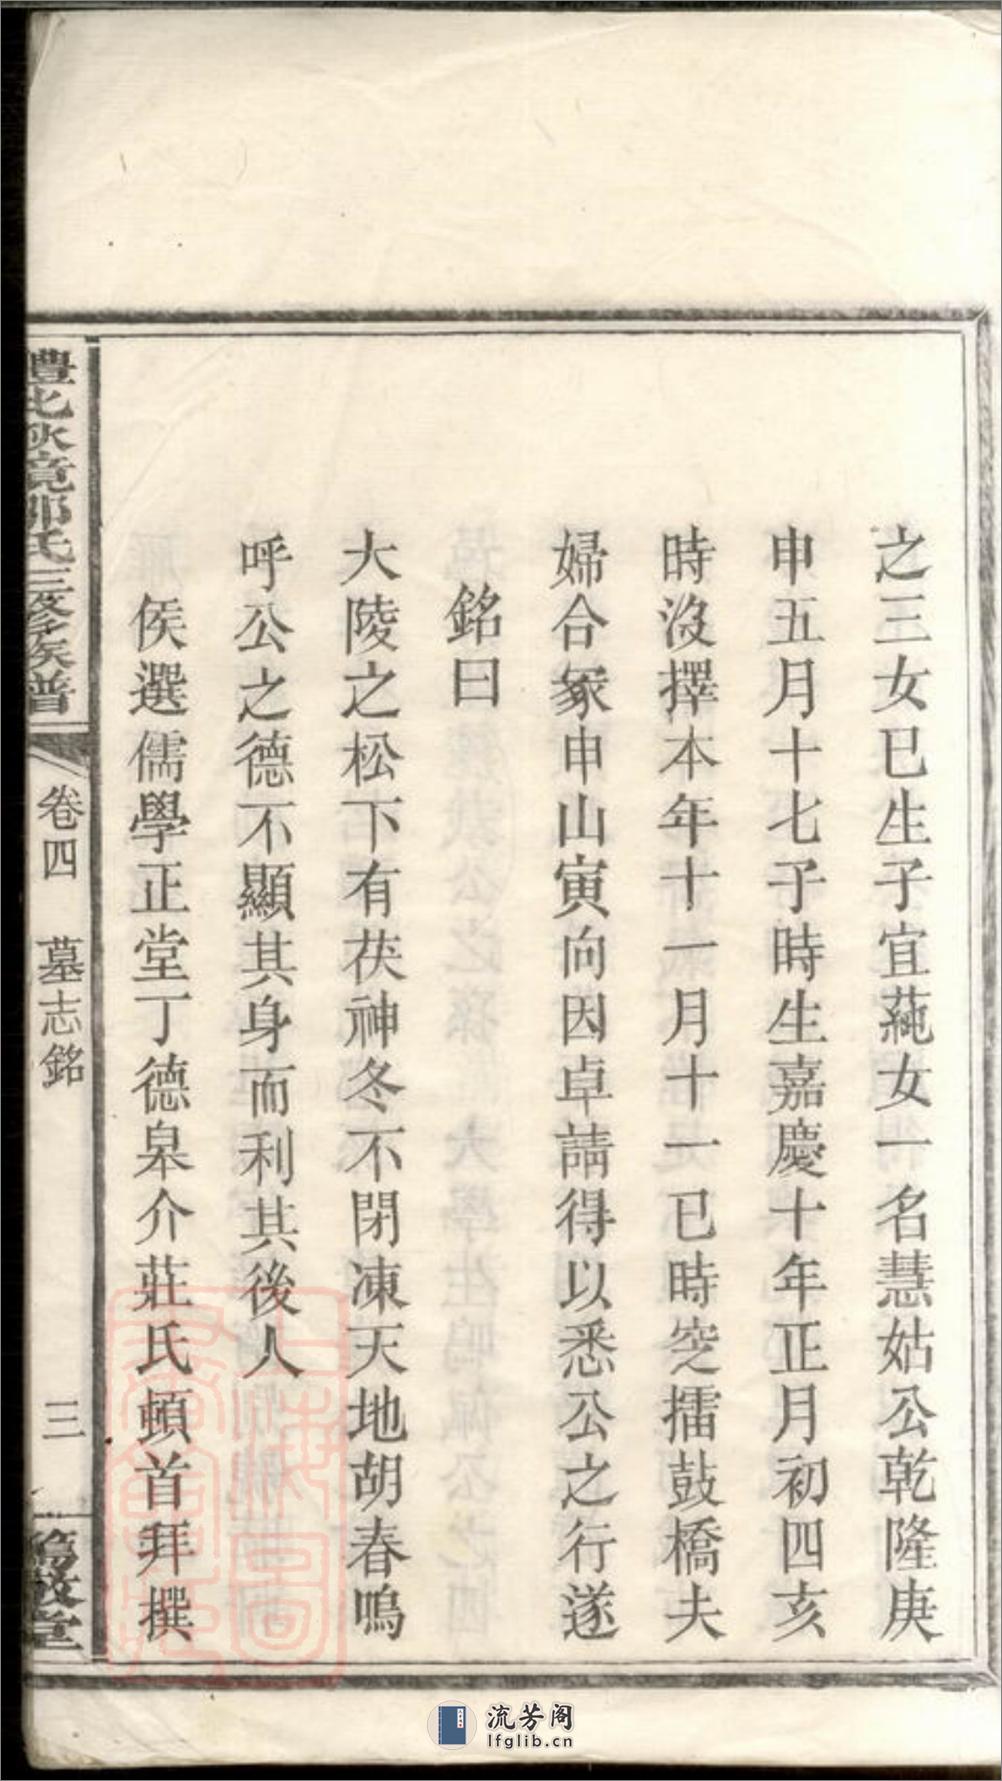 之三女已生子宜蒓女一名慧姑公乾隆庚
申五月十七子時生嘉慶十年正月初四亥
時沒擇本年十一月十一巳時窆擂鼓橋夫
婦合冢申山寅向因卓請得以悉公之行遂
銘曰
大陵之松下有茯神冬不閉凍天地胡春嗚
呼公之德不顯其身而利其後人
侯選儒學正堂丁德皋介莊氏頓首拜撰
氏三修族譜
卷四 墓志銘
三
堂
流芳阁
lfglib.cn